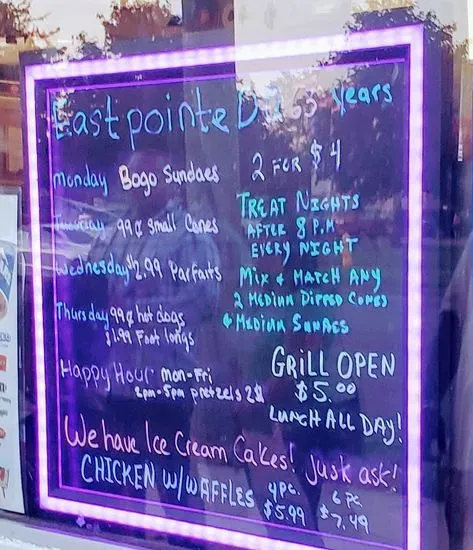 Eastpointe DQ 63 years
Monday Bogo Sundaes
Tuesday 99¢ small Cones
Wednesday $2.99 Parfaits
Thursday 99¢ hot dogs
$1.99 Foot longs
Happy Hour mon-Fri
2pm-5pm pretzels 2$
2 FOR $4
TREAT NIGHTS
AFTER 8 P.M
EVERY NIGHT
MIX & MATCH ANY
2 MEDIUM DIPPED CONES
& MEDIUM SUNAES
GRILL OPEN
$5.00
LUNCH ALL DAY!
We have Ice Cream Cakes! just ask!
CHICKEN W/WAFFLES 4pc. 6 pc
$5.99 $7.49